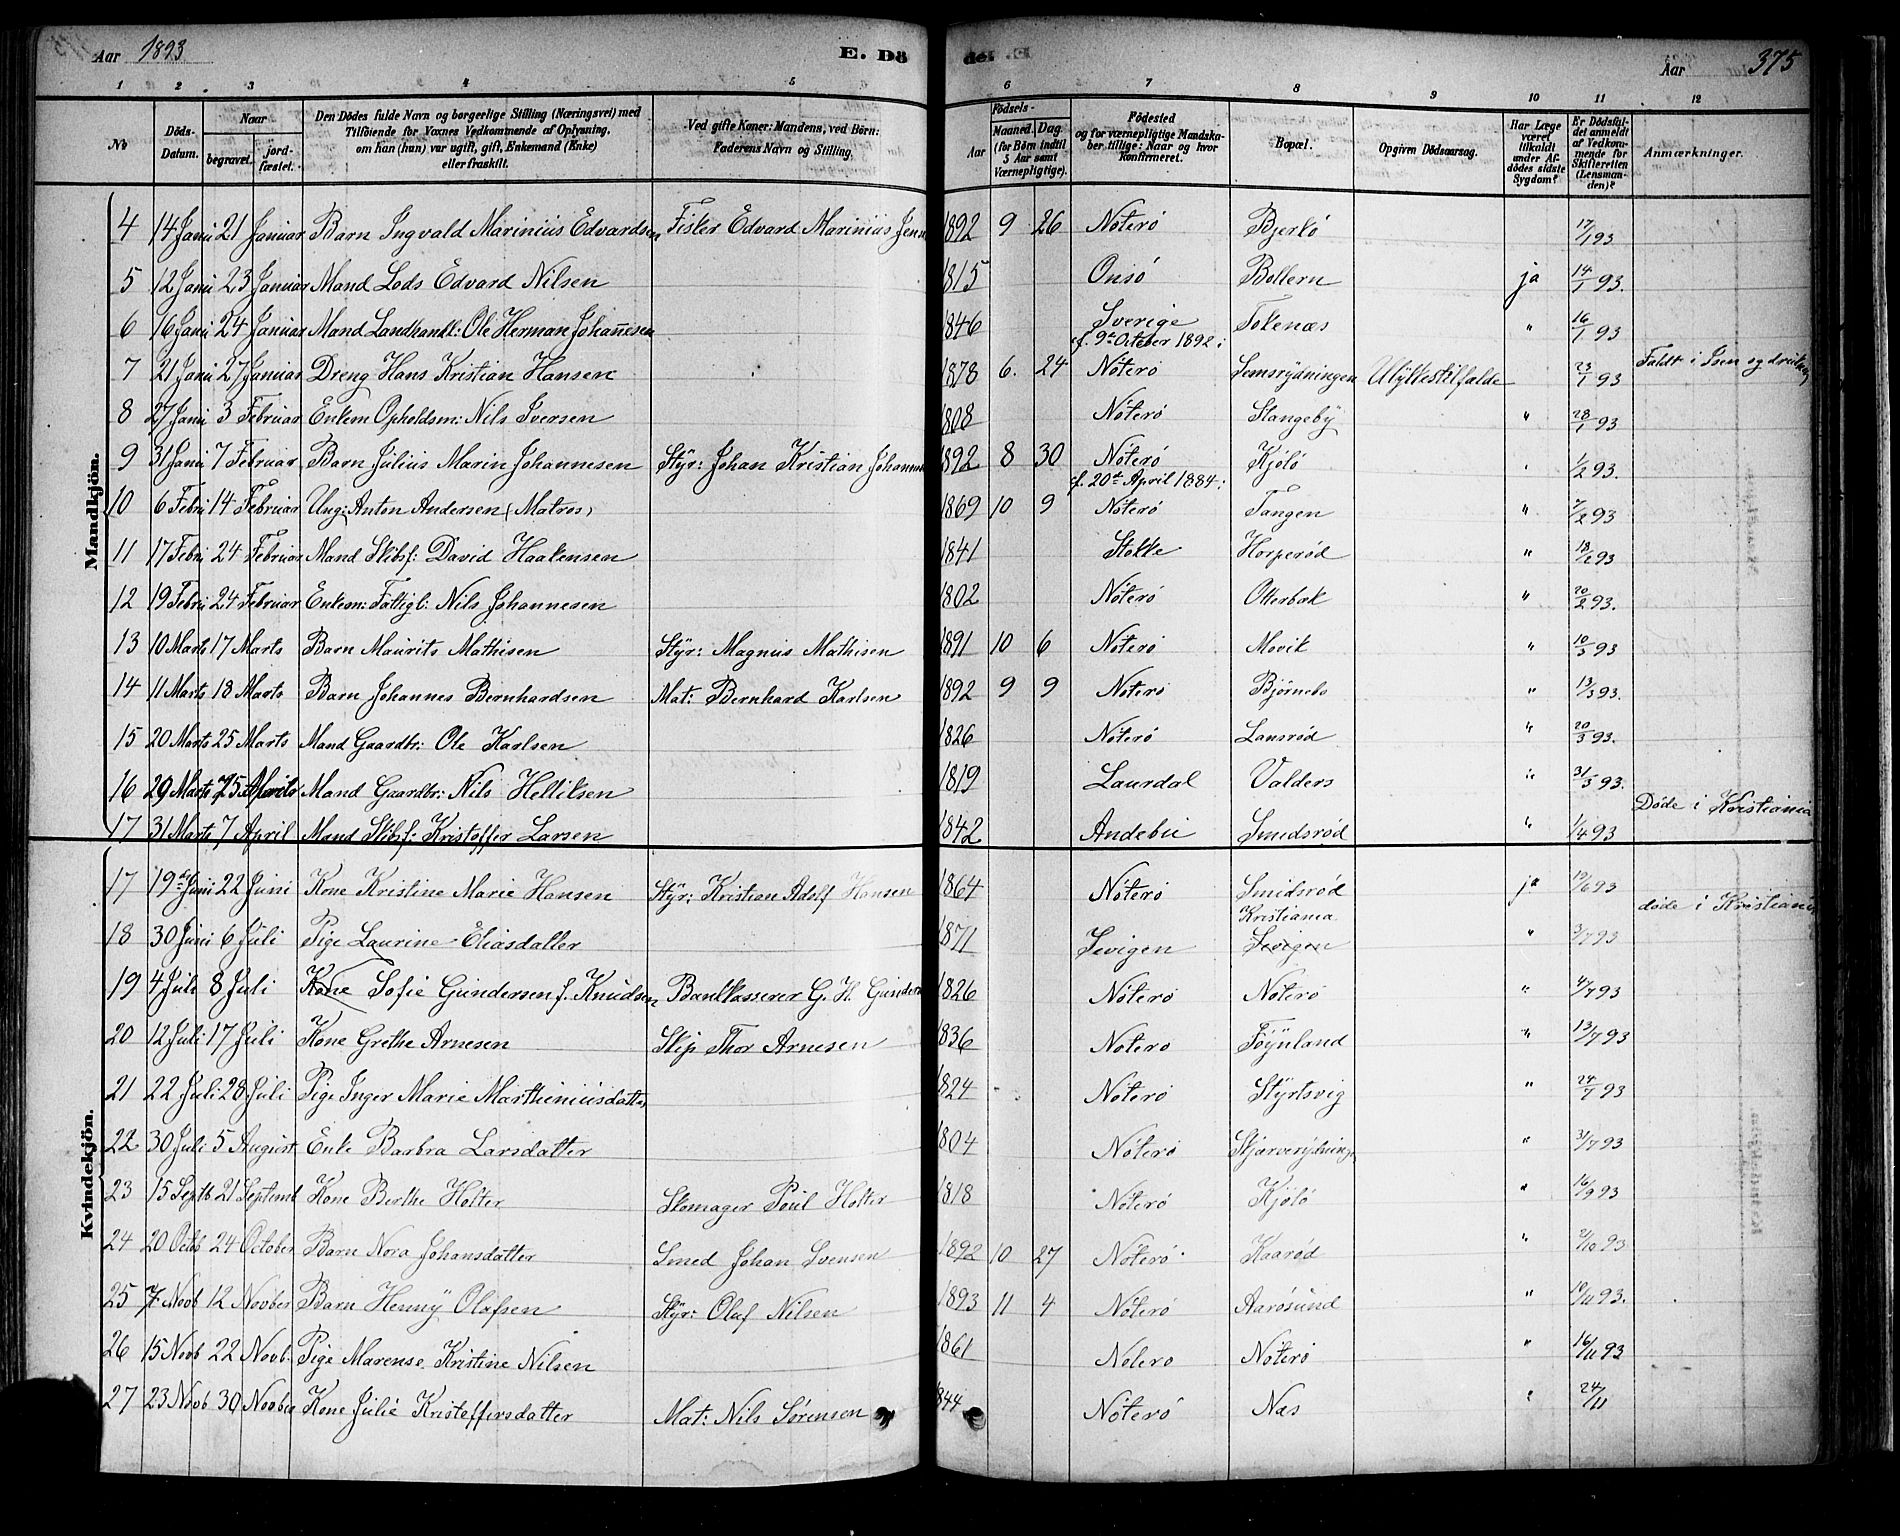 Aar 1893 E. Dö
de. Aar 375
1 2 3 4 5 6 7 8 9 10 11 12
No
Döds-Datum.
Naar
begravet.
jordfæstet.
Den Dödes fulde Navn og borgerlige Stilling (Næringsvei) med
Tilföiende for Voxnes Vedkommende af Oplysning,
om han (hun) var ugift, gift, Enkemand (Enke)
eller fraskilt.
Ved gifte Koner: Mandens, ved Börn:
Faderens Navn og Stilling.
Födsels-
Aar
Maaned. Dag.
(for Börn indtil
5 Aar samt
Værnepligtige).
Födested
og for værnepligtige Mandska-
ber tillige: Naar og hvor
Konfirmeret.
Bopæl.
Opgiven Dödsaarsag.
Har Læge
været
tilkaldt
under Af-
dödes sidste
Sygdom?
Er Dödsfal-
det anmeldt
af Vedkom-
mende for
Skifteretten
(Lensman-
den)?
Anmærkninger.
Mandkjön.
4 14 Janu 21 Januar Barn Ingvald Marinius Edvardsen Fisker Edvard Marinius Jens 1892 9 26 Nöterö Bjerkö 17/1 93
5 12 Janu 23 Januar Mand Lods Edvard Nilsen 1815 Onsö Bollern ja 14/1 93.
6 16 Janu 24 Januar Mand Landhandl: Ole Herman Johannesen 1846 Sverige Tokenæs " 16/1 93
cf. 9de October 1892:
7 21 Janu 27 Januar Dreng Hans Kristian Hansen 1878 6. 24 Nöterö Semsrydningen Ulykkestilfælde 23/1 93 Faldt i Isen og druknet
8 27 Janu 3 Februar Enkem Opholdsm: Nils Iversen 1808 Nöterö Stangeby " 28/1 93
9 31 Janu 7 Februar Barn Julius Marin Johannesen Styr: Johan Kristian Johannes 1892 8 30 Nöterö Kjölö " 1/2 93.
cf. 20de April 1884:
10 6 Febru 14 Februar Ung: Anton Andersen (Matros) 1869 10 9 Nöterö Tangen " 7/2 93
11 17 Febru 24 Februar Mand Skibsf: David Haakensen 1841 Stokke Horperöd " 18/2 93
12 19 Febru 24 Februar Enkem: Fattigl: Nils Johannesen 1802 Nöterö Otterbæk " 20/2 93.
13 10 Marts 17 Marts Barn Maurits Mathisen Styr: Magnus Mathisen 1891 10 6 Nöterö Movik " 10/3 93
14 11 Marts 18 Marts Barn Johannes Bernhardsen Mat: Bernhard Karlsen 1892 9 9 Nöterö Bjørnebo " 13/3 93.
15 20 Marts 25 Marts Mand Gaardbr: Ole Karlsen 1826 Nöterö Lansröd " 20/3 93.
16 29 Marts Mand Gaardbr: Nils Helliksen 1819 Laurdal Valders " 31/3 93.
17 31 Marts 7 April Mand Skibsf: Kristoffer Larsen 1842 Andebu Smidsröd " 1/4 93 Døde i Kristiania
Kvindekjön.
17 19de Juni 22 Juni Kone Kristine Marie Hansen Styr: Kristian Adolf Hansen 1864 Nöterö Smidsröd ja 19/6 93
18 30 Juni 6 Juli Pige Laurine Eliasdatter 1871 Sevigen Kristiania Sevigen " 3/7 93 døde i Kristiania
19 4 Juli 8 Juli Kone Sofie Gundersen f. Knudsen Bankkasserer G. H. Gunders 1826 Nöterö Nöterö " 4/7 93
20 12 Juli 17 Juli Kone Grethe Arnesen Skip Thor Arnesen 1836 Nöterö Föynland " 13/7 93
21 22 Juli 28 Juli Pige Inger Marie Martheniusdatter 1824 Nöterö Styrtsvig " 24/7 93
22 30 Juli 5 August Enke Barbra Larsdatter 1804 Nöterö Skjærverydninge " 31/7 93
23 15 Septb 21 Septemb Kone Berthe Holter Skomager Poul Holter 1818 Nöterö Kjölö " 16/9 93
24 20 Octb 24 October Barn Nora Johansdatter Smed Johan Svensen 1892 10 27 Nöterö Kaaröd " /10 93
25 7 Novb 12 Novber Barn Henny Olafsen Styr: Oluf Nilsen 1893 11 4 Nöterö Aarösund " /11 93.
26 15 Novb 22 Novb. Pige Marense Kristine Nilsen 1861 Nöterö Nöterö " 16/11 93
27 23 Novb 30 Novber Kone Julie Kristoffersdatter Mat: Nils Sörensen 1844 Nöterö Næs " 24/11